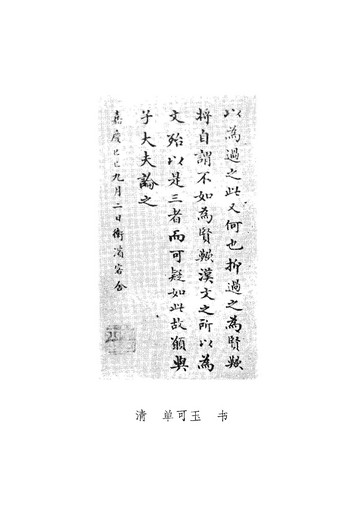 以為過之此又何也抑過之為賢歟
將自謂不如為賢歟漢文之所以為
文殆以是三者而可疑如此故願與
子大夫論之
嘉慶己巳九月二日衡濱客舍
清 单可玉 书